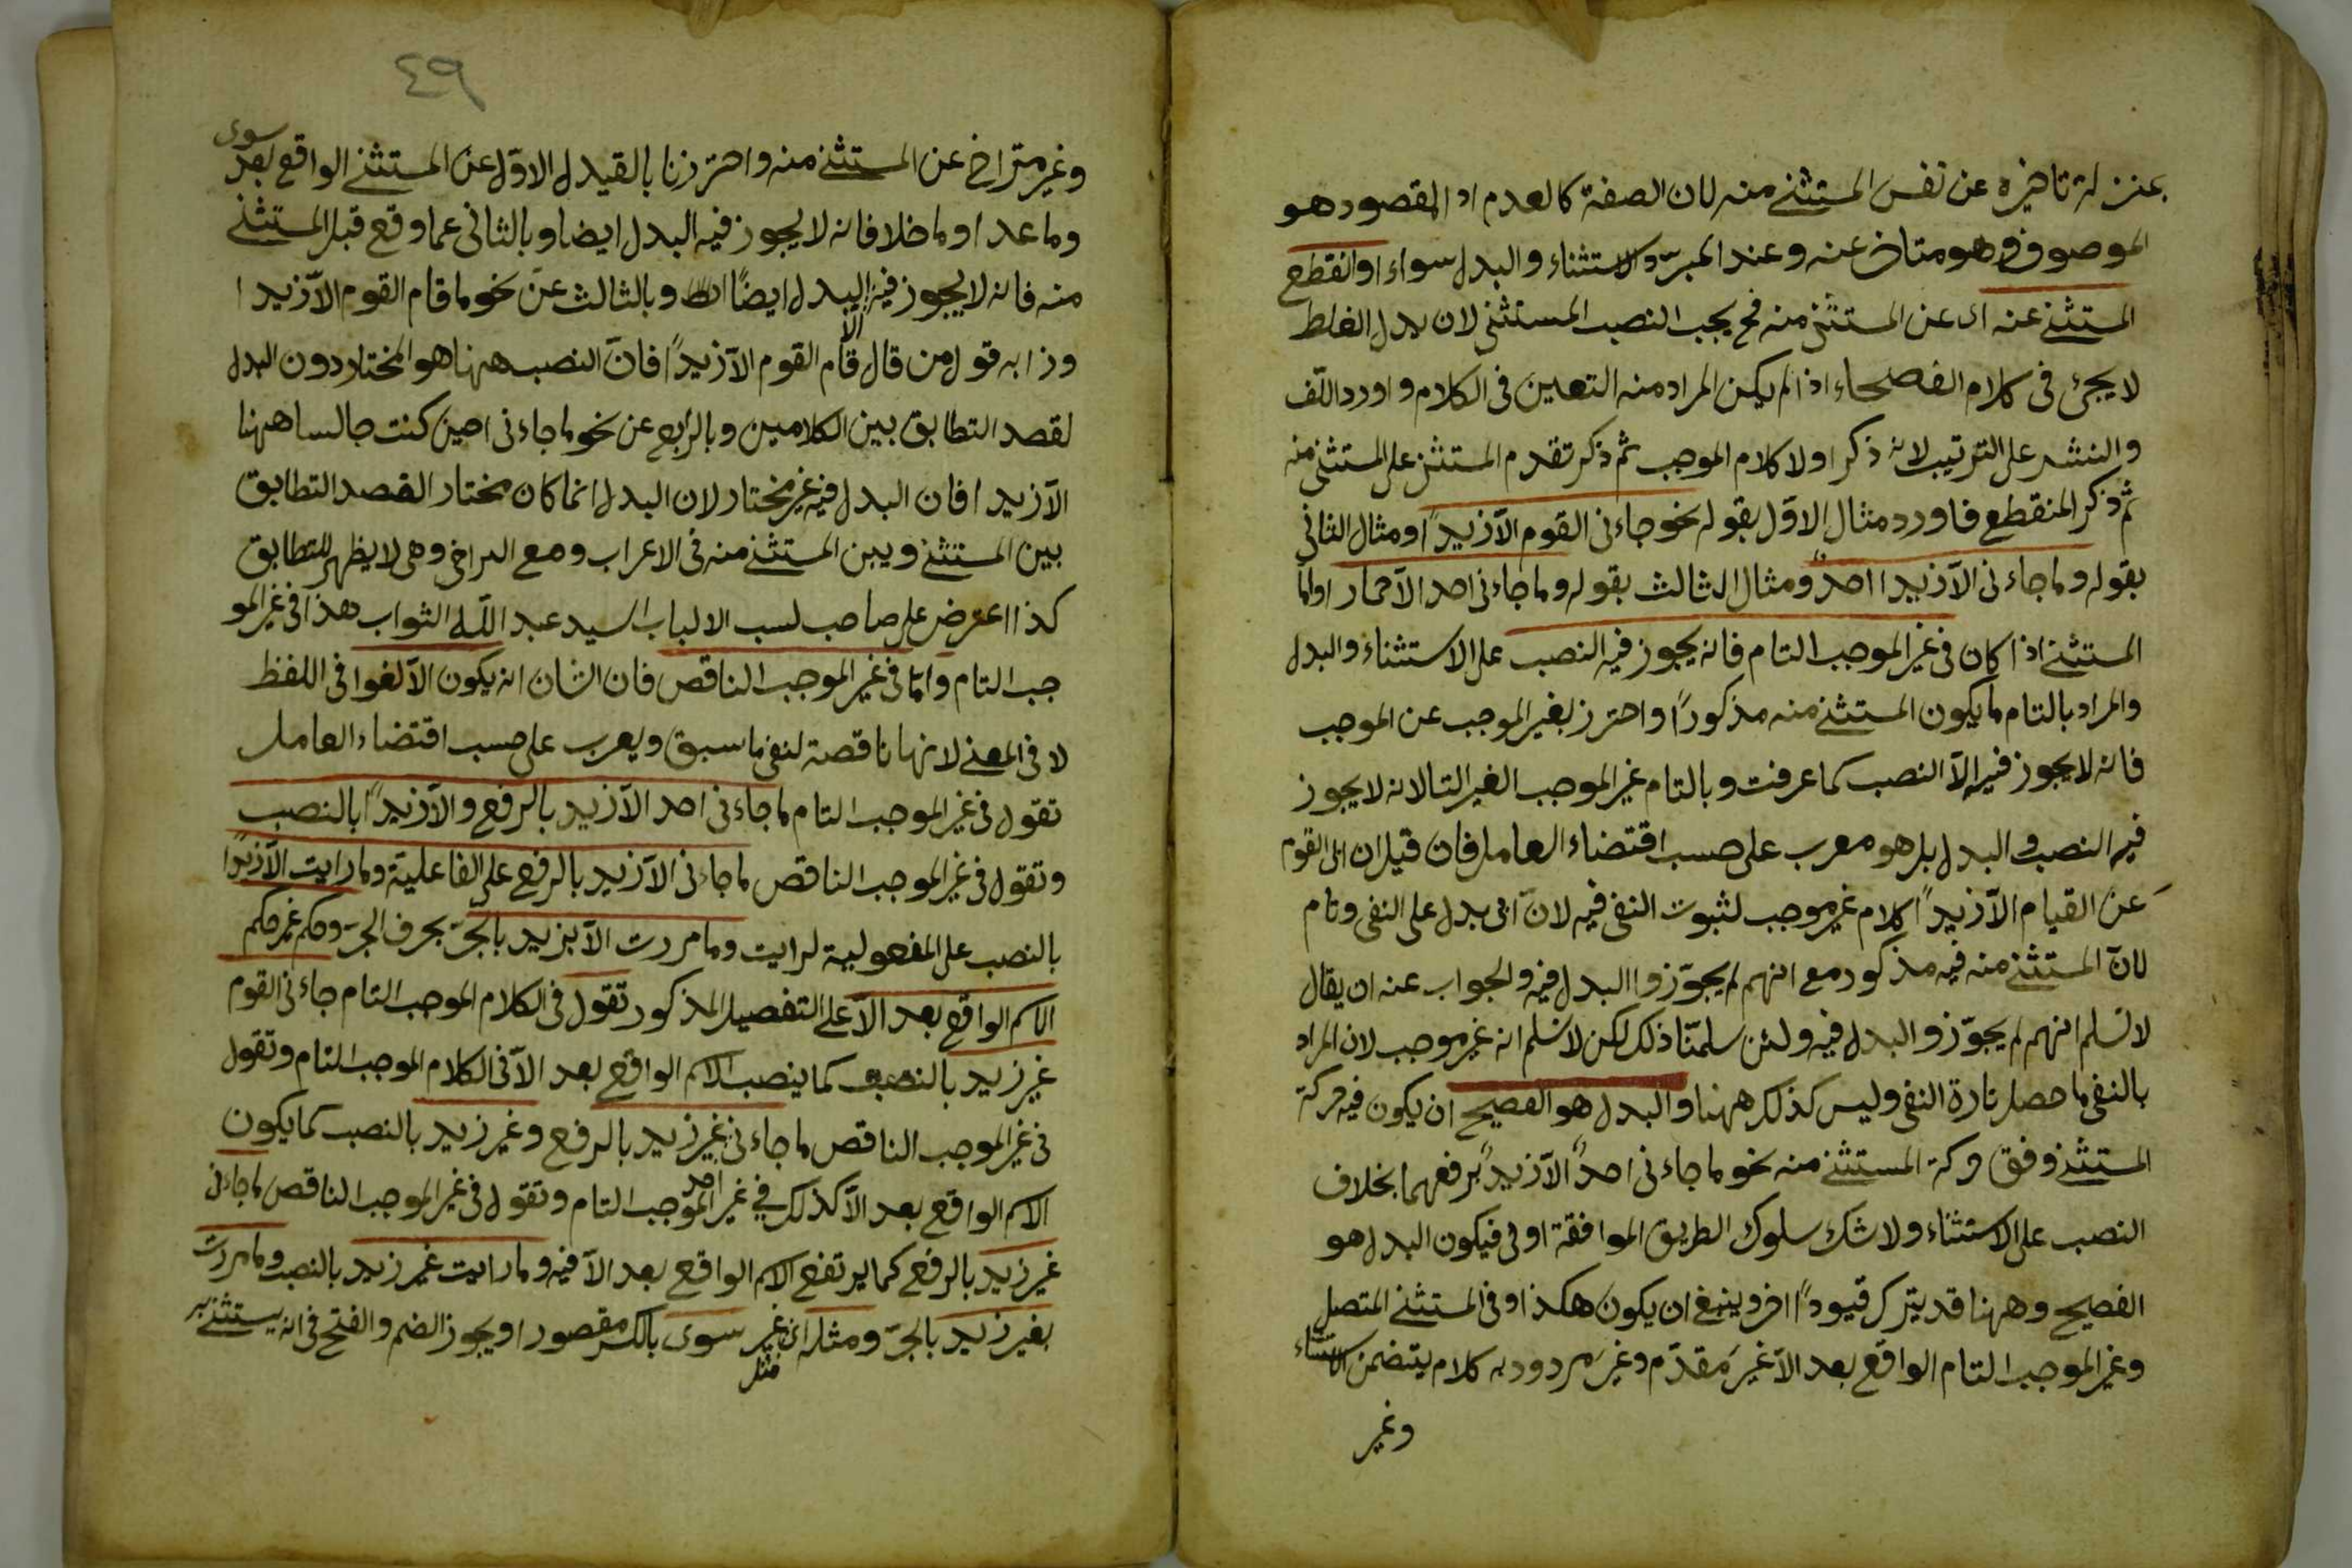 بمنزلة تاخيره عن نفس المستثنى منه لان الصفة كالعدم اذ المقصود هو
الموصوف وهو متاخر عنه وعند المبرّد الاستثناء والبدل سواء او انقطع
المستثنى عنه اى عن المستثنى منه فح يجب النصب المستثنى لان بدل الغلط
لا يجئ فى كلام الفصحاء اذا لم يكن المراد منه التعين فى الكلام و اورد اللف
والنشر على الترتيب لانه ذكر اولا كلام الموجب ثم ذكر تقدم المستثنى على المستثنى منه
ثم ذكر المنقطع فاورد مثال الاوّل بقوله نحو جاءنى القوم الاّ زيداً ومثال الثانى
بقوله وما جاءنى الاّ زيدا احدٌ ومثال الثالث بقوله وما جاءنى احد الاّ حمارا واما
المستثنى اذا كان فى غير الموجب التام فانه يجوز فيه النصب على الاستثناء والبدل
والمراد بالتام ما يكون المستثنى منه مذكوراً واحترز بغير الموجب عن الموجب
فانه لا يجوز فيه الاّ النصب كما عرفت وبالتام غير الموجب الغير التا لانه لا يجوز
فيه النصب والبدل بل هو معرب على حسب اقتضاء العامل فان قيل ان ابى القوم
عن القيام الاّ زيداً كلام غير موجب لثبوت النفى فيه لانّ ابى يدل على النفى وتام
لانّ المستثنى منه فيه مذكور مع انهم لم يجوّزوا البدل فيه والجواب عنه ان يقال
لا نسلم انهم لم يجوّزو البدل فيه ولئن سلمنا ذلك لكن لا نسلم انه غير موجب لان المراد
بالنفى ما حصل بادة النفى وليس كذلك ههنا والبدل هو الفصيح ان يكون فيه حركة
المستثنى وفق حركة المستثنى منه نحو ما جاءنى احدٌ الاّ زيدٌ برفعهما بخلاف
النصب على الاستثناء ولا شك سلوك الطريق الموافقة اولى فيكون البدل هو
الفصيح وههنا قد يترك قيوداً اخر وينبغ ان يكون هكذا وفى المستثنى المتصل
وغير الموجب التام الواقع بعد الاّ غير مقدّم وغير مردود به كلام يتضمن الاستثناء
وغير
٤٩
وغير متراخ عن المستثنى منه واحترزنا بالقيد الاوّل عن المستثنى الواقع بعد سوى
وما عدا وما خلا فانه لا يجوز فيه البدل ايضا وبالثانى عما وقع قبل المستثنى
منه فانه لا يجوز فيه البدل ايضًا وبالثالث عن نحو ما قام القوم الاّ زيدا
ردا به قول من قال قام القوم الاّ زيداً فانّ النصب ههنا هو المختار دون البدل
لقصد التطابق بين الكلامين وبالرّابع عن نحو ما جاءنى احين كنت جالسا ههنا
الاّ زيدا فان البدل فيه غير مختار لان البدل انما كان مختار القصد التطابق
بين المستثنى وبين المستثنى منه فى الاعراب ومع البراخى وهى لا يظهر للتطابق
كذا اعترض على صاحب لسب الالباب السيد عبد اللّه الثواب هذا فى غير المو
جب التام وامّا فى غير الموجب الناقص فان الشان انه يكون الاّ لغوا فى اللفظ
لا فى المعنى لانها ناقصة لنفى ما سبق ويعرب على حسب اقتضاء العامل
تقول فى غير الموجب التام ما جاءنى احد الاّ زيد بالرفع والاّ زيداً بالنصب
وتقول فى غير الموجب الناقص ما جاءنى الاّ زيد بالرفع على الفاعلية وما رايت الاّ زيدًا
بالنصب على المفعولية لرايت وما مررت الاّ بزيد بالجرّ بحرف الجرّ وحكم غير حكم
الاسم الواقع بعد الاّ على التفصيل المذكور تقول فى الكلام الموجب التام جاءنى القوم
غير زيد بالنصب كما ينصب الاسم الواقع بعد الاّ فى الكلام الموجب التام وتقول
فى غير الموجب الناقص ما جاءنى احد غير زيد بالرفع وغير زيد بالنصب كما يكون
الاسم الواقع بعد الاّ كذلك فى غير الموجب التام وتقول فى غير الموجب الناقص ما جاءنى
غير زيد بالرفع كما يرتفع الاسم الواقع بعد الاّ فيه وما رايت غير زيد بالنصب وما مررت
بغير زيد بالجرّ ومثله اى مثل غير سوى بالكسر مقصورا ويجوز الضم والفتح فى انه يستثنى به